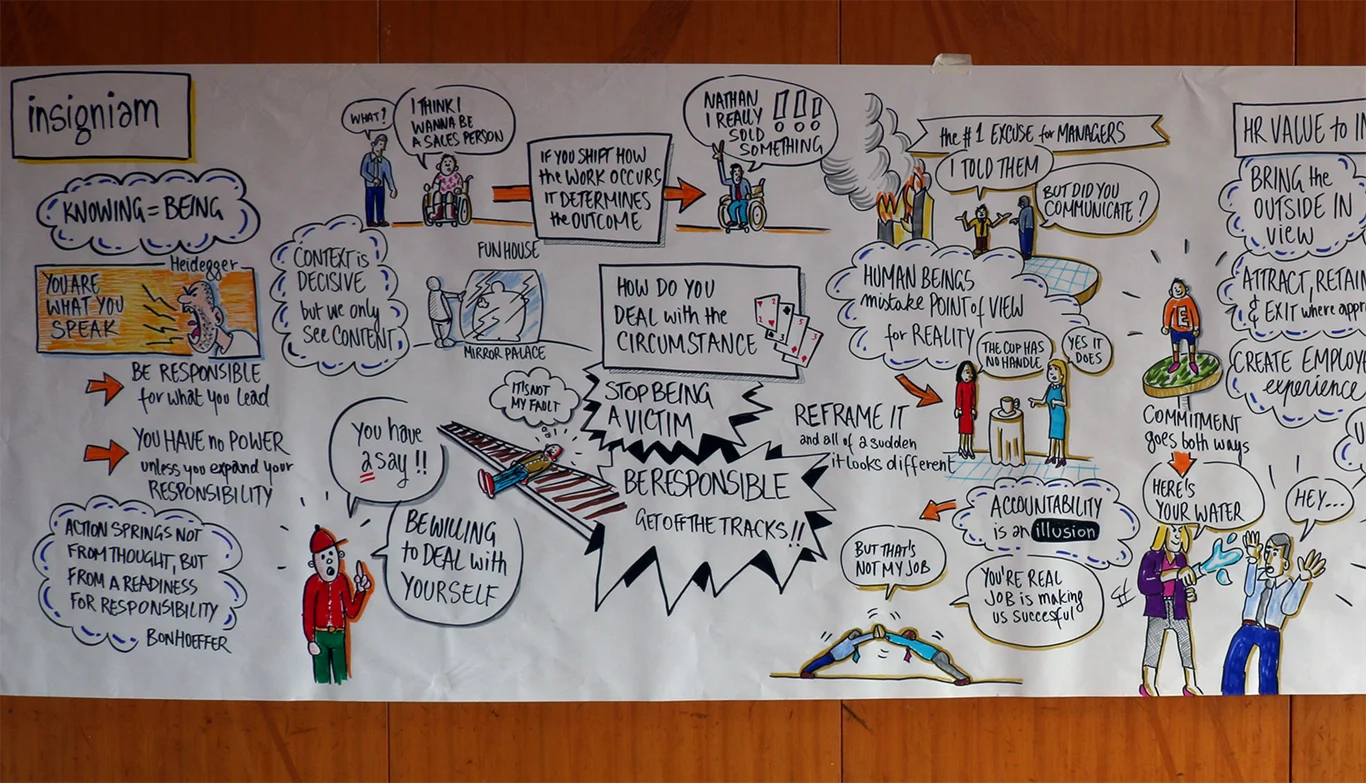 insigniam
KNOWING = BEING
Heidegger
YOU ARE
WHAT YOU
SPEAK
BE RESPONSIBLE
for what you lead
YOU HAVE no POWER
unless you expand your
RESPONSIBILITY
ACTION SPRINGS NOT
FROM THOUGHT, BUT
FROM A READINESS
FOR RESPONSIBILITY
BONHOEFFER
WHAT?
I THINK I
WANNA BE
A SALES PERSON
IF YOU SHIFT HOW
the WORK OCCURS
IT DETERMINES
the OUTCOME
NATHAN
I REALLY
SOLD !!!
SOMETHING
CONTEXT is
DECISIVE
but we only
see CONTENT
FUN HOUSE
MIRROR PALACE
HOW DO YOU
DEAL with the
CIRCUMSTANCE
IT'S NOT
MY FAULT
STOP BEING
A VICTIM
BE RESPONSIBLE
GET OFF THE TRACKS!!
You have
a say!!
BE WILLING
to DEAL with
YOURSELF
the #1 EXCUSE for MANAGERS
I TOLD THEM
BUT DID YOU
COMMUNICATE?
HUMAN BEINGS
mistake POINT of VIEW
for REALITY
THE CUP HAS
NO HANDLE
YES IT
DOES
REFRAME IT
and all of a sudden
it looks different
ACCOUNTABILITY
is an illusion
BUT THAT'S
NOT MY JOB
YOU'RE REAL
JOB is making
us succesful
E
COMMITMENT
goes both ways
HERE'S
YOUR WATER
HEY...
HR VALUE to
BRING the
OUTSIDE IN
view
ATTRACT, RETAIN
& EXIT where
CREATE
experience